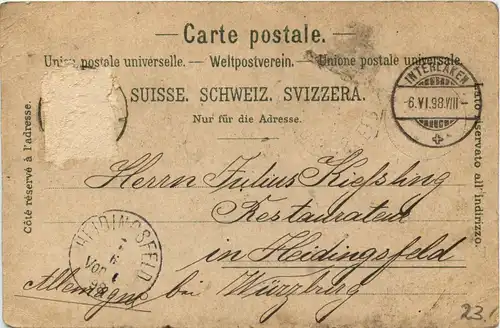 — Carte postale. —
Union postale universelle. — Weltpostverein. — Unione postale universale.
SUISSE. SCHWEIZ. SVIZZERA.
Nur für die Adresse.
Côté réservé à l'adresse.
Lato riservato all'indirizzo.
INTERLAKEN
-6.VI.98.VIII-
Herrn Julius Kießling
Restaurateur
in Heidingsfeld
bei Würzburg
Allemagne
HEIDINGSFELD
Vor
23.